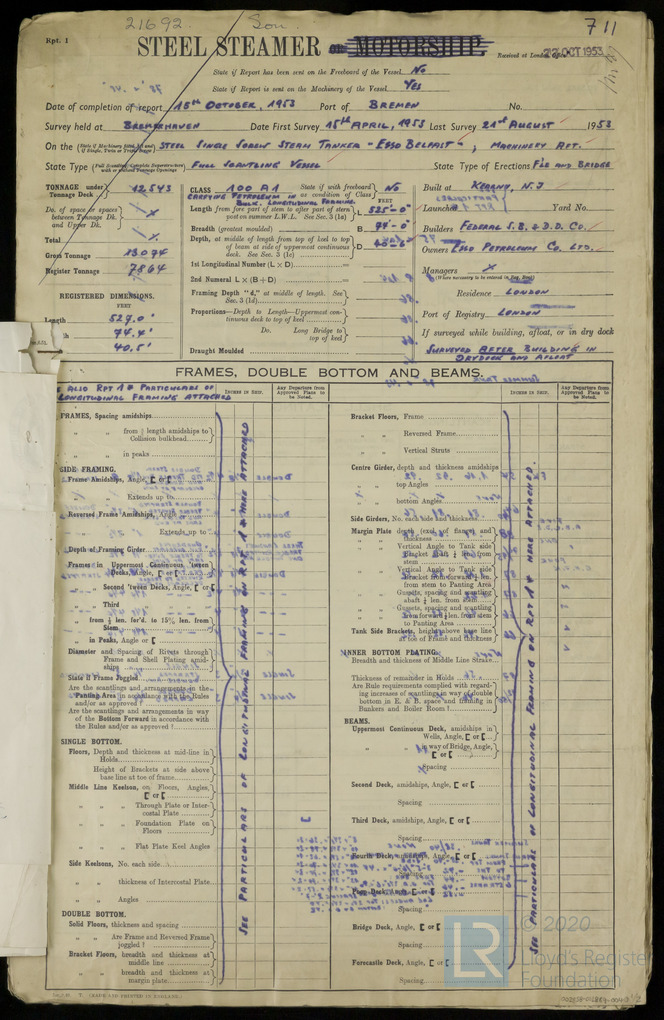 21692.
Son.
711
Rpt. 1
STEEL STEAMER OR MOTORSHIP
Received at London Office 22 OCT 1953
State if Report has been sent on the Freeboard of the Vessel No
State if Report is sent on the Machinery of the Vessel. Yes
Date of completion of report 15th October, 1953 Port of Bremen No.
Survey held at Bremerhaven Date First Survey 15th April, 1953 Last Survey 21st August 1953
On the (State if Machinery fitted Aft and if Single, Twin or Triple Screw) Steel Single Screw Steam Tanker "Esso Belfast", Machinery Aft.
State Type (Full Scantling, Complete Superstructure with or without Tonnage Openings) Full Scantling Vessel State Type of Erections F'cle and Bridge
TONNAGE under Tonnage Deck 12543
Do. of space or spaces between Tonnage Dk. and Upper Dk.
Total
Gross Tonnage 13094
Register Tonnage 7864
REGISTERED DIMENSIONS.
FEET
Length 527.0'
74.4'
40.5'
CLASS 100 A1 State if with freeboard as condition of Class No
Carrying Petroleum in Bulk. Longitudinal Framing.
FEET
Length from fore part of stem to after part of stern post on summer L.W.L. See Sec. 3 (1a) L 525-0"
Breadth (greatest moulded) B 74-0"
Depth, at middle of length from top of keel to top of beam at side of uppermost continuous deck. See Sec. 3 (1c) D 40-0"
1st Longitudinal Number (L × D)
2nd Numeral L × (B + D)
Framing Depth "d," at middle of length. See Sec. 3 (1d)
Proportions—Depth to Length—Uppermost continuous deck to top of keel
Do. Long Bridge to top of keel
Draught Moulded
Built at Kearny, N.J
Launched Yard No.
Builders Federal S.B. & D.D. Co.
Owners Esso Petroleum Co. Ltd.
Managers
(Where necessary to be entered in Reg. Book)
Residence London
Port of Registry London
If surveyed while building, afloat, or in dry dock
Surveyed after building in drydock and afloat
FRAMES, DOUBLE BOTTOM AND BEAMS.
See also Rpt 1* Particulars of Longitudinal Framing attached
INCHES IN SHIP.
Any Departures from Approved Plans to be Noted.
INCHES IN SHIP.
Any Departures from Approved Plans to be Noted.
FRAMES, Spacing amidships
" " from 3/5 length amidships to Collision bulkhead
" " in peaks
SIDE FRAMING.
Frame Amidships, Angle, [ or [
" " Extends up to
Reversed Frame Amidships, Angle
" " Extends up to
Depth of Framing Girder
Frames in Uppermost Continuous 'tween Decks, Angle, [ or [
" Second 'tween Decks, Angle, [ or [
" Third " " "
" from 1/5 len. for'd. to 15% len. from Stem
" in Peaks, Angle or [
Diameter and Spacing of Rivets through Frame and Shell Plating amidships
State if Frame Joggled
Are the scantlings and arrangements in the Panting Area in accordance with the Rules and/or as approved?
Are the scantlings and arrangements in way of the Bottom Forward in accordance with the Rules and/or as approved?
SINGLE BOTTOM.
Floors, Depth and thickness at mid-line in Holds
Height of Brackets at side above base line at toe of frame
Middle Line Keelson, on Floors, Angles, [ or [
" " Through Plate or Intercostal Plate
" " Foundation Plate on Floors
" " Flat Plate Keel Angles
Side Keelsons, No. each side
" " thickness of Intercostal Plate
" " Angles
DOUBLE BOTTOM.
Solid Floors, thickness and spacing
" " Are Frame and Reversed Frame joggled?
Bracket Floors, breadth and thickness at middle line
" " breadth and thickness at margin plate
See particulars of longitudinal framing on Rpt. 1* here attached
Bracket Floors, Frame
" " Reversed Frame
" " Vertical Struts
Centre Girder, depth and thickness amidships
" " top Angles
" " bottom Angles
Side Girders, No. each side and thickness
Margin Plate depth (excl. of flange) and thickness
" " Vertical Angle to Tank side
" " Vertical Angle to Tank side Bracket from forward 1/5 len. from stem to Panting Area
" " Gussets, spacing and scantling abaft 1/5 len. from stem
" " Gussets, spacing and scantling from forward 1/5 len. from stem to Panting Area
Tank Side Brackets, height above base line at toe of Frame and thickness
INNER BOTTOM PLATING.
Breadth and thickness of Middle Line Strake
Thickness of remainder in Holds
Are Rule requirements complied with regarding increases of scantlings in way of double bottom in E. & B. space and framing in Bunkers and Boiler Room?
BEAMS.
Uppermost Continuous Deck, amidships in Wells, Angle, [ or [
" " in way of Bridge, Angle, [ or [
Spacing
Second Deck, amidships, Angle, [ or [
Spacing
Third Deck, amidships, Angle, [ or [
Spacing
Fourth Deck, amidships, Angle, [ or [
Spacing
Poop Deck, Angle, [ or [
Spacing
Bridge Deck, Angle, [ or [
Spacing
Forecastle Deck, Angle, [ or [
Spacing
See particulars of longitudinal framing on Rpt 1* here attached.
© 2020
LR
Lloyd's Register
Foundation